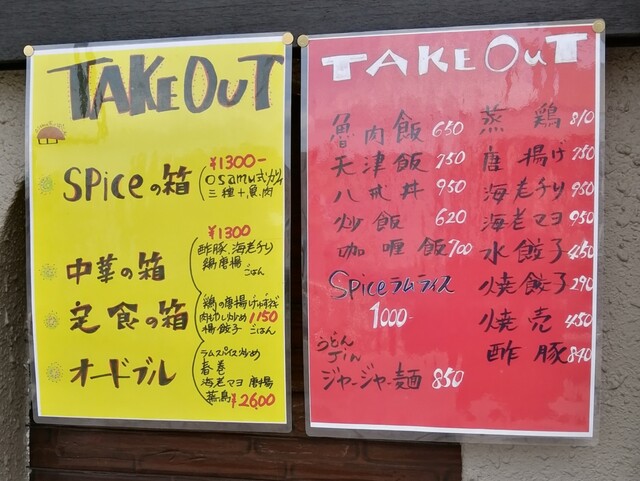 TAKEOUT
SPiceの箱
¥1300-
osamu式カリィ
三種+魚肉
中華の箱
¥1300
酢豚 海老チリ
鶏唐揚
ごはん
定食の箱
鶏の唐揚げ
肉もやし炒め 1150
揚餃子 ごはん
オードブル
ラムスパイス炒め
春巻
海老マヨ 唐揚
蒸鳥 ¥2600
TAKEOUT
魯肉飯 650
天津飯 750
八戒丼 950
炒飯 620
咖喱飯 700
SPiceラムライス
1000-
うどん
ジャージャー麺 850
蒸鶏 810
唐揚げ 750
海老チリ 950
海老マヨ 950
水餃子 450
焼餃子 290
焼売 450
酢豚 840